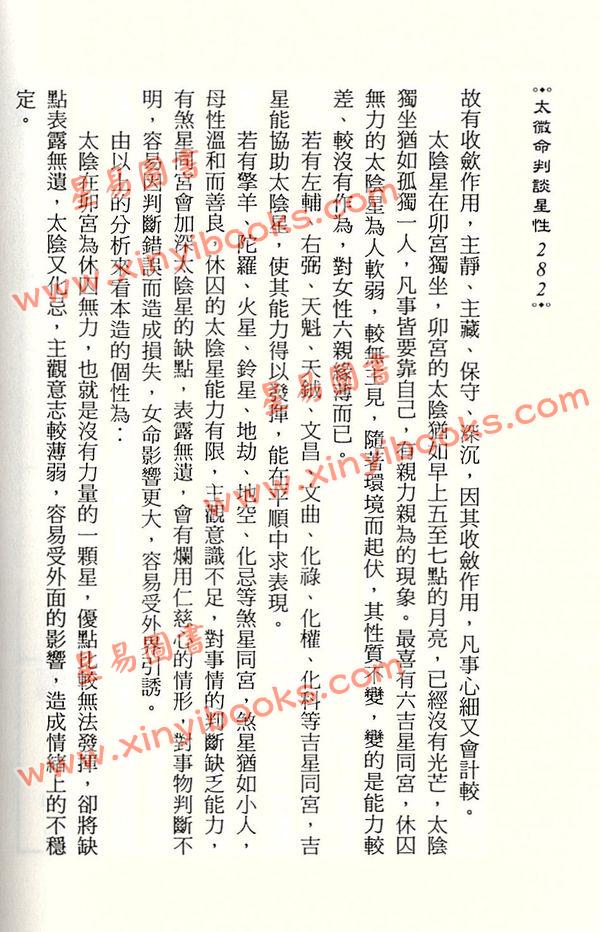 太微命判談星性 282
故有收斂作用，主靜、主藏、保守、深沉，因其收斂作用，凡事心細又會計較。
太陰星在卯宮獨坐，卯宮的太陰猶如早上五至七點的月亮，已經沒有光芒，太陰
獨坐猶如孤獨一人，凡事皆要靠自己，有親力親為的現象。最喜有六吉星同宮，休囚
無力的太陰星為人軟弱，較無主見，隨著環境而起伏，其性質不變，變的是能力較
差、較沒有作為，對女性六親緣薄而已。
若有左輔、右弼、天魁、天鉞、文昌、文曲、化祿、化權、化科等吉星同宮，吉
星能協助太陰星，使其能力得以發揮，能在平順中求表現。
若有擎羊、陀羅、火星、鈴星、地劫、地空、化忌等煞星同宮，煞星猶如小人，
母性溫和而善良，休囚的太陰星能力有限，主觀意識不足，對事情的判斷缺乏能力，
有煞星同宮會加深太陰星的缺點，表露無遺，會有爛用仁慈心的情形，對事物判斷不
明，容易因判斷錯誤而造成損失，女命影響更大，容易受外界引誘。
由以上的分析來看本造的個性為：
太陰在卯宮為休囚無力，也就是沒有力量的一顆星，優點比較無法發揮，卻將缺
點表露無遺，太陰又化忌，主觀意志較薄弱，容易受外面的影響，造成情緒上的不穩
定。
星易圖書
www.xinyibooks.com
星易圖書
www.xinyibooks.com
星易圖書
www.xinyibooks.com